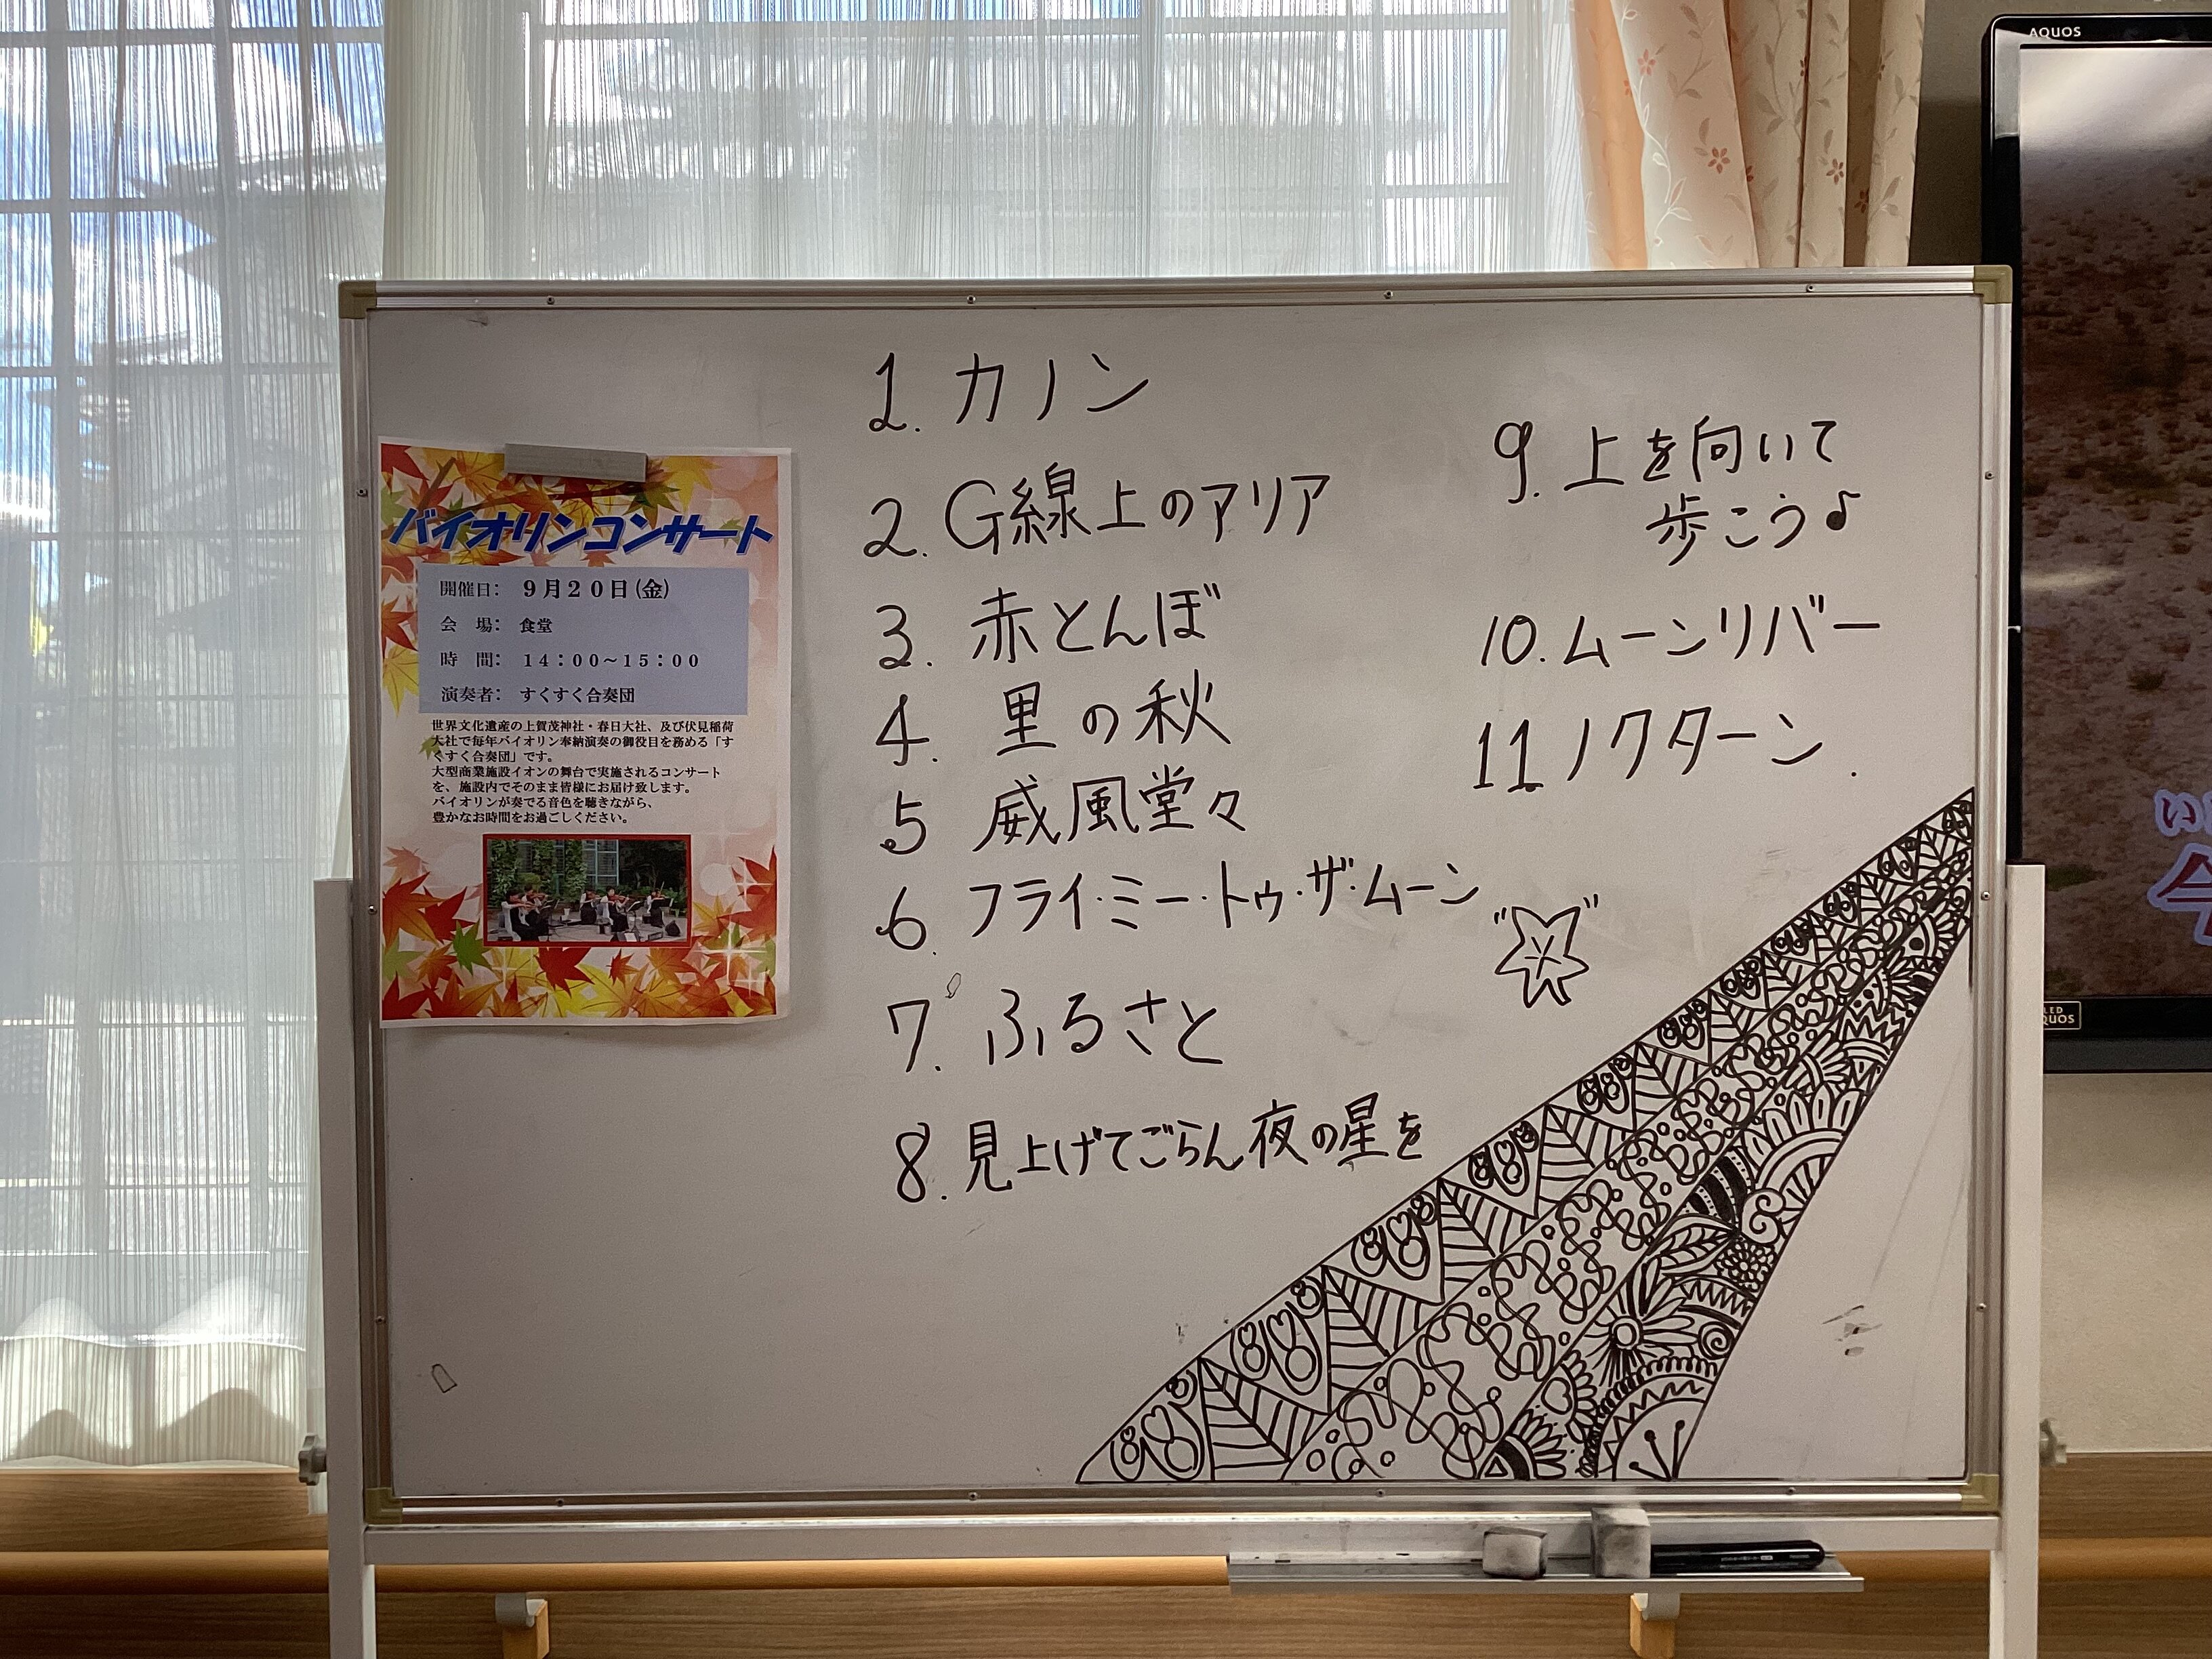 AQUOS
バイオリンコンサート
開催日： 9月20日(金)
会　場： 食堂
時　間： 14：00～15：00
演奏者： すくすく合奏団
世界文化遺産の上賀茂神社・春日大社、及び伏見稲荷
大社で毎年バイオリン奉納演奏の御役目を務める「す
くすく合奏団」です。
大型商業施設イオンの舞台で実施されるコンサート
を、施設内でそのまま皆様にお届け致します。
バイオリンが奏でる音色を聴きながら、
豊かなお時間をお過ごしください。
1. カノン
2. G線上のアリア
3. 赤とんぼ
4. 里の秋
5 威風堂々
6. フライ・ミー・トゥ・ザ・ムーン
7. ふるさと
8. 見上げてごらん夜の星を
9. 上を向いて
歩こう♪
10. ムーンリバー
11 ノクターン.